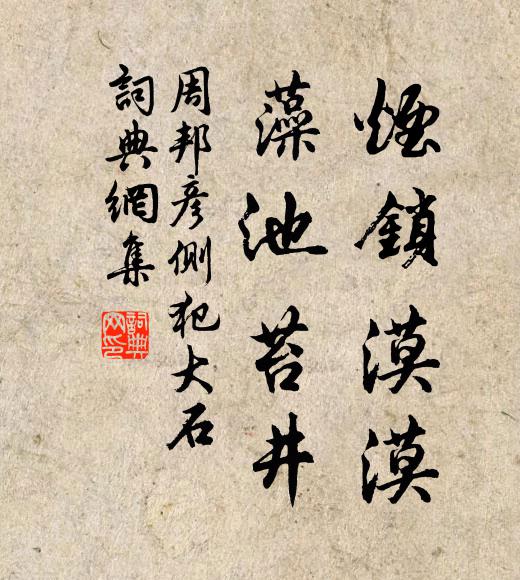 煙鎖漠漠
藻池苔井
周邦彦側犯大石
詞典網集
詞典网印